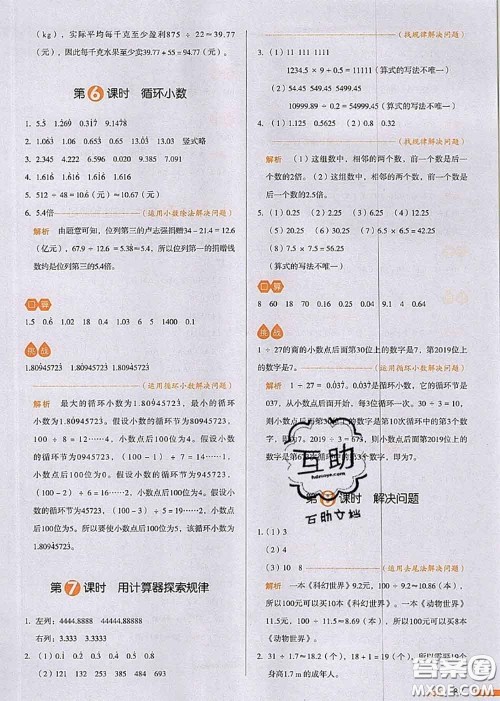 （kg），实际平均每千克至少盈利875 ÷ 22≈39.77
（元），因此每千克水果至少卖39.77＋55＝94.77（元）。
第6课时 循环小数
1. 5.5 1.269 0.317 9.1478
2. 1.06 1.06 0.653 0.65 13.35 竖式略
3. 1.529 4.222 4.151 9.385 7.091
5. 512 ÷ 48＝10.6（元）≈10.67（元）
6. 5.4倍（运用小数除法解决问题）
解析 由题意可知，位列第三的卢志强捐赠34－21.4＝12.6
（亿元），67.9 ÷ 12.6＝5.38≈5.4。所以位列第一的捐赠钱
数约是位列第三的5.4倍。
口算
1.5 0.4 1.6 10 18 8 0.11 0
挑战
1.80945723 1.80945723
（运用循环小数解决问题）
解析 最大的循环小数为1.80945723，最小的循环
小数为1.80945723。假设小数的循环节为80945723，
（100 ÷ 8＝12……4），小数点后100位为4。假设小数
的循环节为0945723，
（100－1）÷ 7＝14……1，小数点后100位为0。假设小数的循环节为945723，
（100－2）÷ 6＝16……2，小数点后100位为4。假设
小数的循环节为45723，（100－3）÷ 5＝19……2，小
数点后100位为5。所以要使小数点后100位为5，该循环小数为
1.80945723。
第7课时 用计算器探索规律
1. 左列：4444.8888 44444.88888
右列：3.3333 3.33333
2. （1）0.1 0.2 0.3 0.4
（2）121 132 253 385 286
（找规律解决问题）
3. （1）11 1111 111
1234.5 × 9＋0.5＝11111（算式的写法不唯一）
（2）54.45 549.45 5499.45
10999.89 ÷ 0.2＝54999.45
（算式的写法不唯一）
4. （1）0.125 0.0625 （2）0.8 0.32
（找规律解决问题）
解析 （1）这组数中，相邻的两个数，前一个数是后一
个数的2倍。（2）这组数中，相邻的两个数，前一个数是
后一个数的2.5倍。
5. （1）0.25 （2）2.25 （3）6.25 （4）12.25
（5）20.25 （6）30.25 （7）42.25
（8）7.5 × 7.5＝56.25
（算式的写法不唯一）
口算
8 60 18 70 0.16 0.25 0.04 9.1 0.64
挑战
1 ÷ 27的商的小数点后面第30位上的数字是7，第2019位上
的数字是7。（运用循环小数解决问题）
解析 1 ÷ 27＝0.037，是循环小数，它的循环节是
037，从小数点后第1位开始，每3位一循环，30 ÷ 3＝10，
则小数点后面第30位上的数字为第10次循环中的第3个数
字，因此为7。2019 ÷ 3＝673，则小数点后面第2019位上的
数字为第673次循环中的第3个数字，因此为7。
课时 解决问题
1. （1）3
（2）4
（3）10 8（运用去尾法解决问题）
解析 一本《科幻世界》9.2元，100 ÷ 9.2≈10.86（本），
所以100元可以买10本《科幻世界》。一本《动物世界》
11.5元，100 ÷ 11.5≈8.69（本），所以100元可以买8本
《动物世界》。
2. 31 ÷ 1.7≈18.2（个），18＋1＝19（个），所以需要19个
身高1.7 m的成年人。
互助
互助文档
答案圈
MXQE.COM